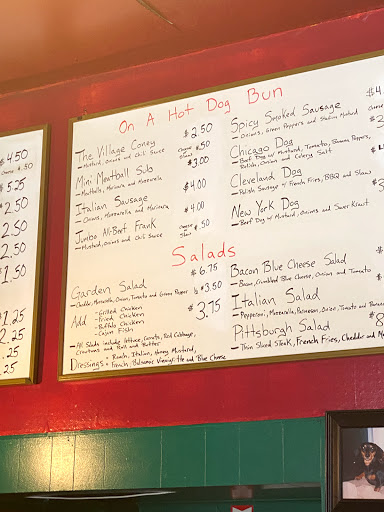 $4.50
cheese $.50
$5.25
2.50
2.50
2.50
1.50
1.25
2.25
.25
.25
On A Hot Dog Bun
The Village Coney $2.50
- Mustard, Onions and Chili Sauce
cheese $.50
Slaw
Mini Meatball Sub $3.00
- Meatballs, Marinara and Mozzarella
Italian Sausage $4.00
- Onions, Mozzarella and Marinara
Jumbo All-Beef Frank $4.00
- Mustard, Onions and Chili Sauce
cheese $.50
Slaw
Spicy Smoked Sausage $4.
- Onions, Green Peppers and Stadium Mustard
cheese
Chicago Dog $2
- Beef Dog w/ Mustard, Tomato, Banana Peppers,
Relish, Onion and Celery Salt
Cleveland Dog
- Polish Sausage w/ French Fries, BBQ and Slaw
New York Dog
- Beef Dog w/ Mustard, Onions and Sauer Kraut
Salads
Garden Salad $6.75
- Cheddar, Mozzarella, Onion, Tomato and Green Pepper ½ $3.50
Add - Grilled Chicken $3.75
- Fried Chicken
- Buffalo Chicken
- Cajun Fish
- All Salads include lettuce, Carrots, Red Cabbage,
Croutons and Roll and Butter
Dressings - Ranch, Italian, Honey Mustard,
French, Balsamic Vinaigrette and Blue Cheese
Bacon Blue Cheese Salad
- Bacon, Crumbled Blue Cheese, Onion and Tomato
Italian Salad
- Pepperoni, Mozzarella, Parmesan, Onion, Tomato and Banana
Pittsburgh Salad $8
- Thin Sliced Steak, French Fries, Cheddar and